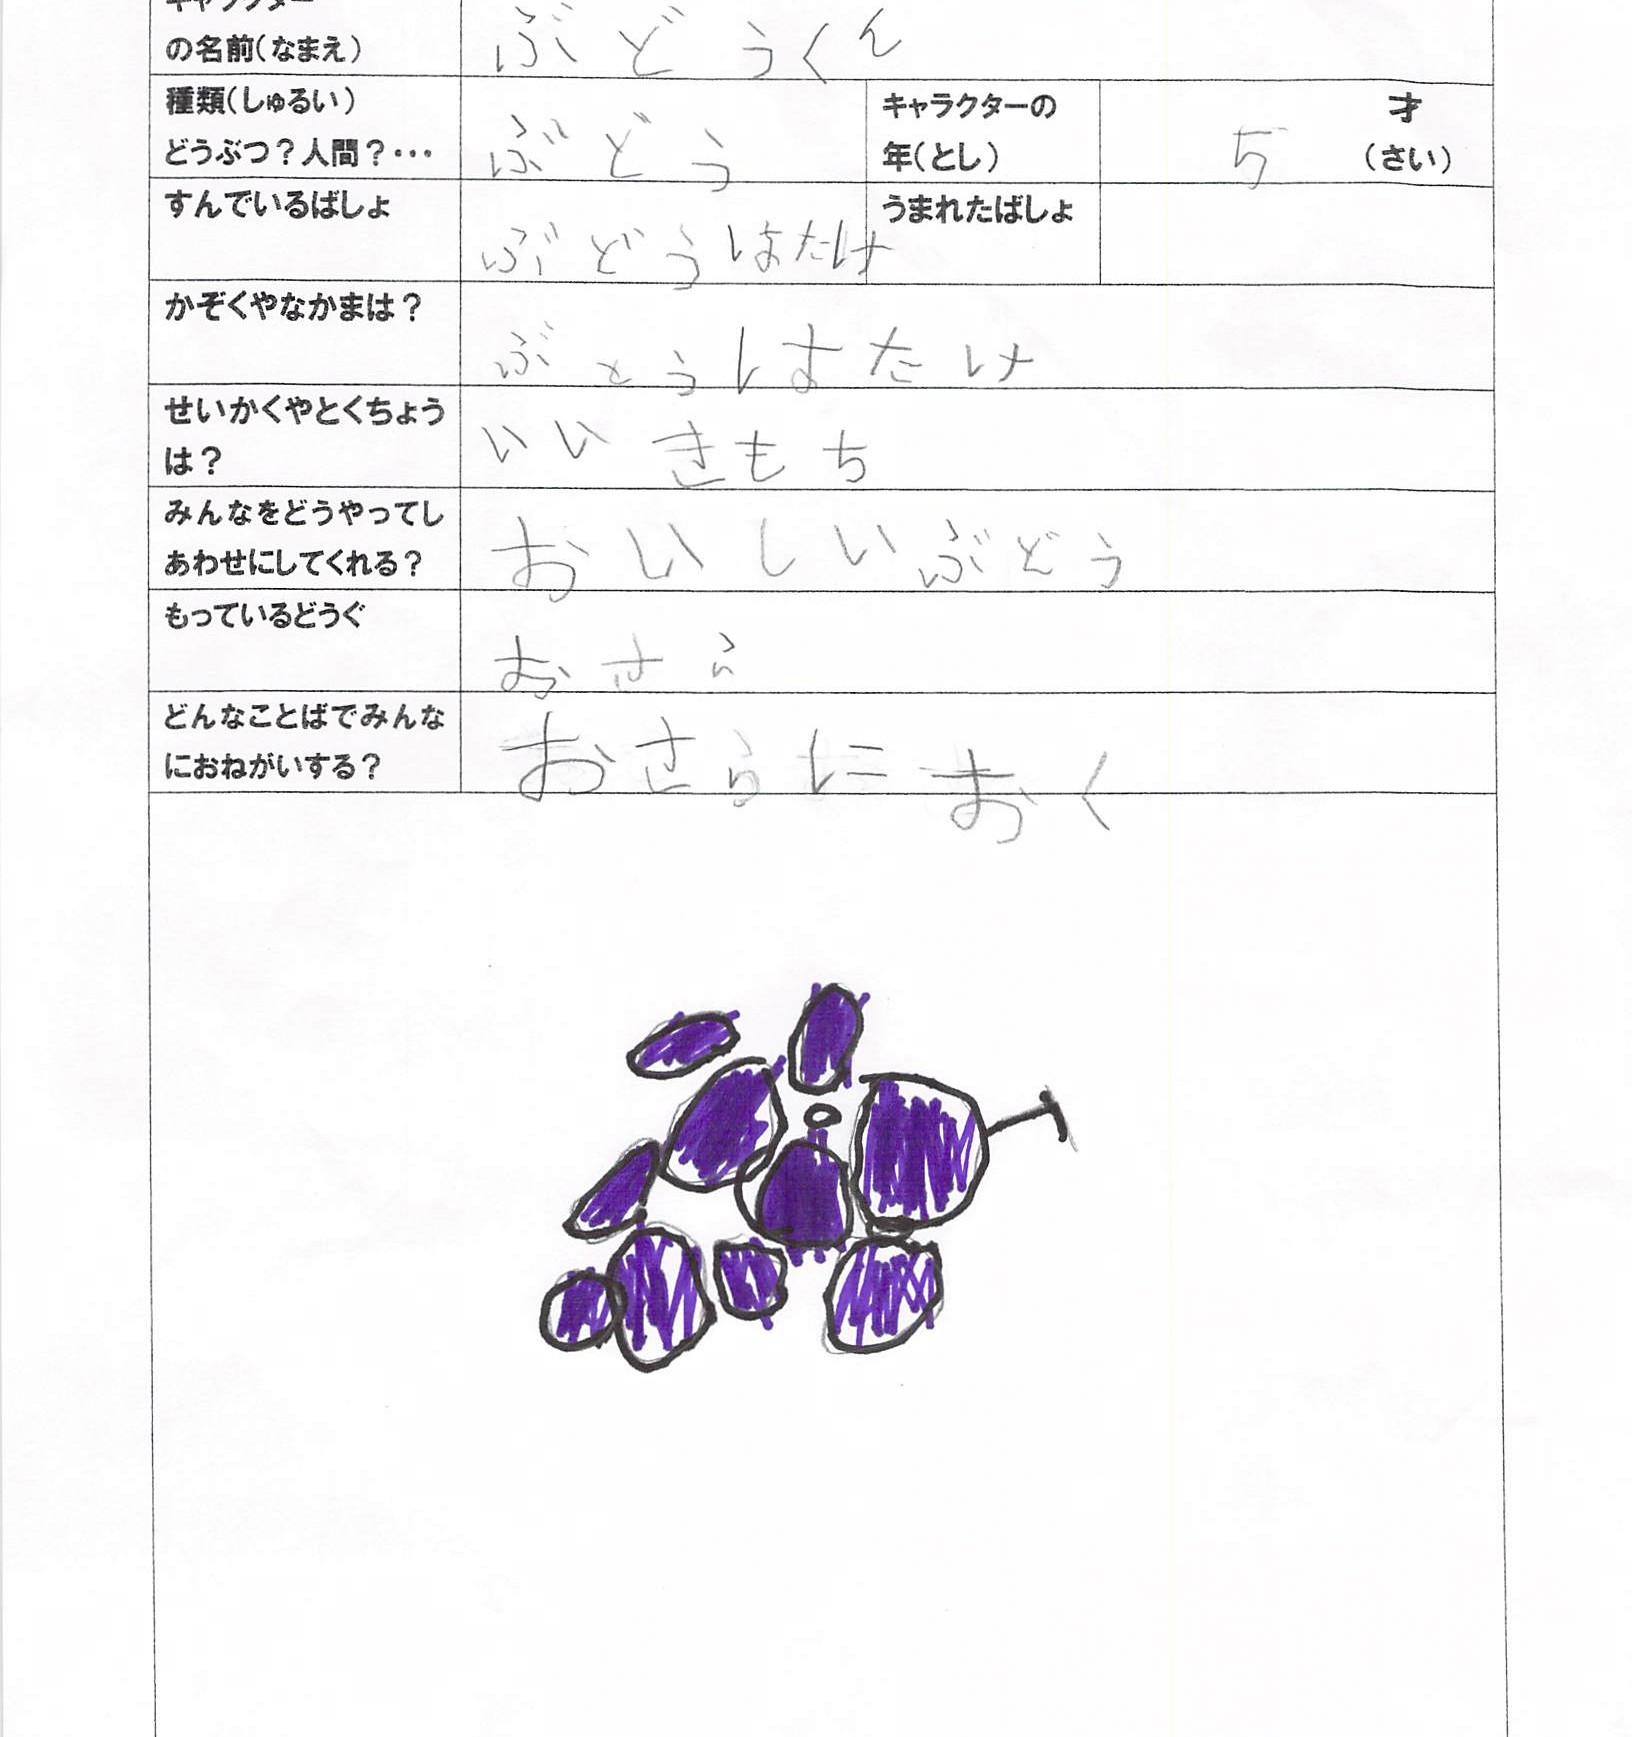 キャラクター
の名前(なまえ)
ぶどうくん
種類(しゅるい)
どうぶつ?人間?・・・
ぶどう
キャラクターの
年(とし)
5
才
(さい)
すんでいるばしょ
ぶどうはたけ
うまれたばしょ
かぞくやなかまは?
ぶとうはたけ
せいかくやとくちょう
は?
いいきもち
みんなをどうやってし
あわせにしてくれる?
おいしいぶどう
もっているどうぐ
おさら
どんなことばでみんな
におねがいする?
おさらにおく